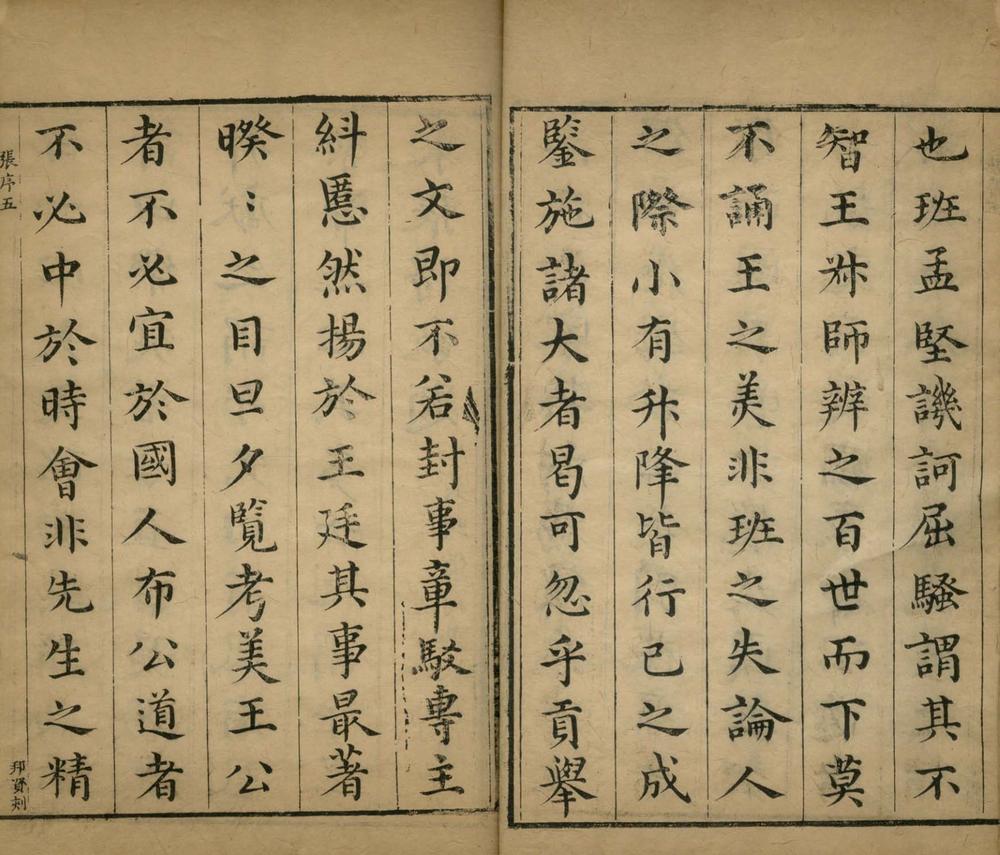 也班孟堅譏訶屈騷謂其不
智王叔師辨之百世而下莫
不誦王之美非班之失論人
之際小有升降皆行已之成
鑒施諸大者曷可忽乎貢舉
之文即不若封事章駁專主
糾慝然揚於王廷其事最著
暌：之目旦夕覽考美王公
者不必宜於國人布公道者
不必中於時會非先生之精
張序五
邦賢刻